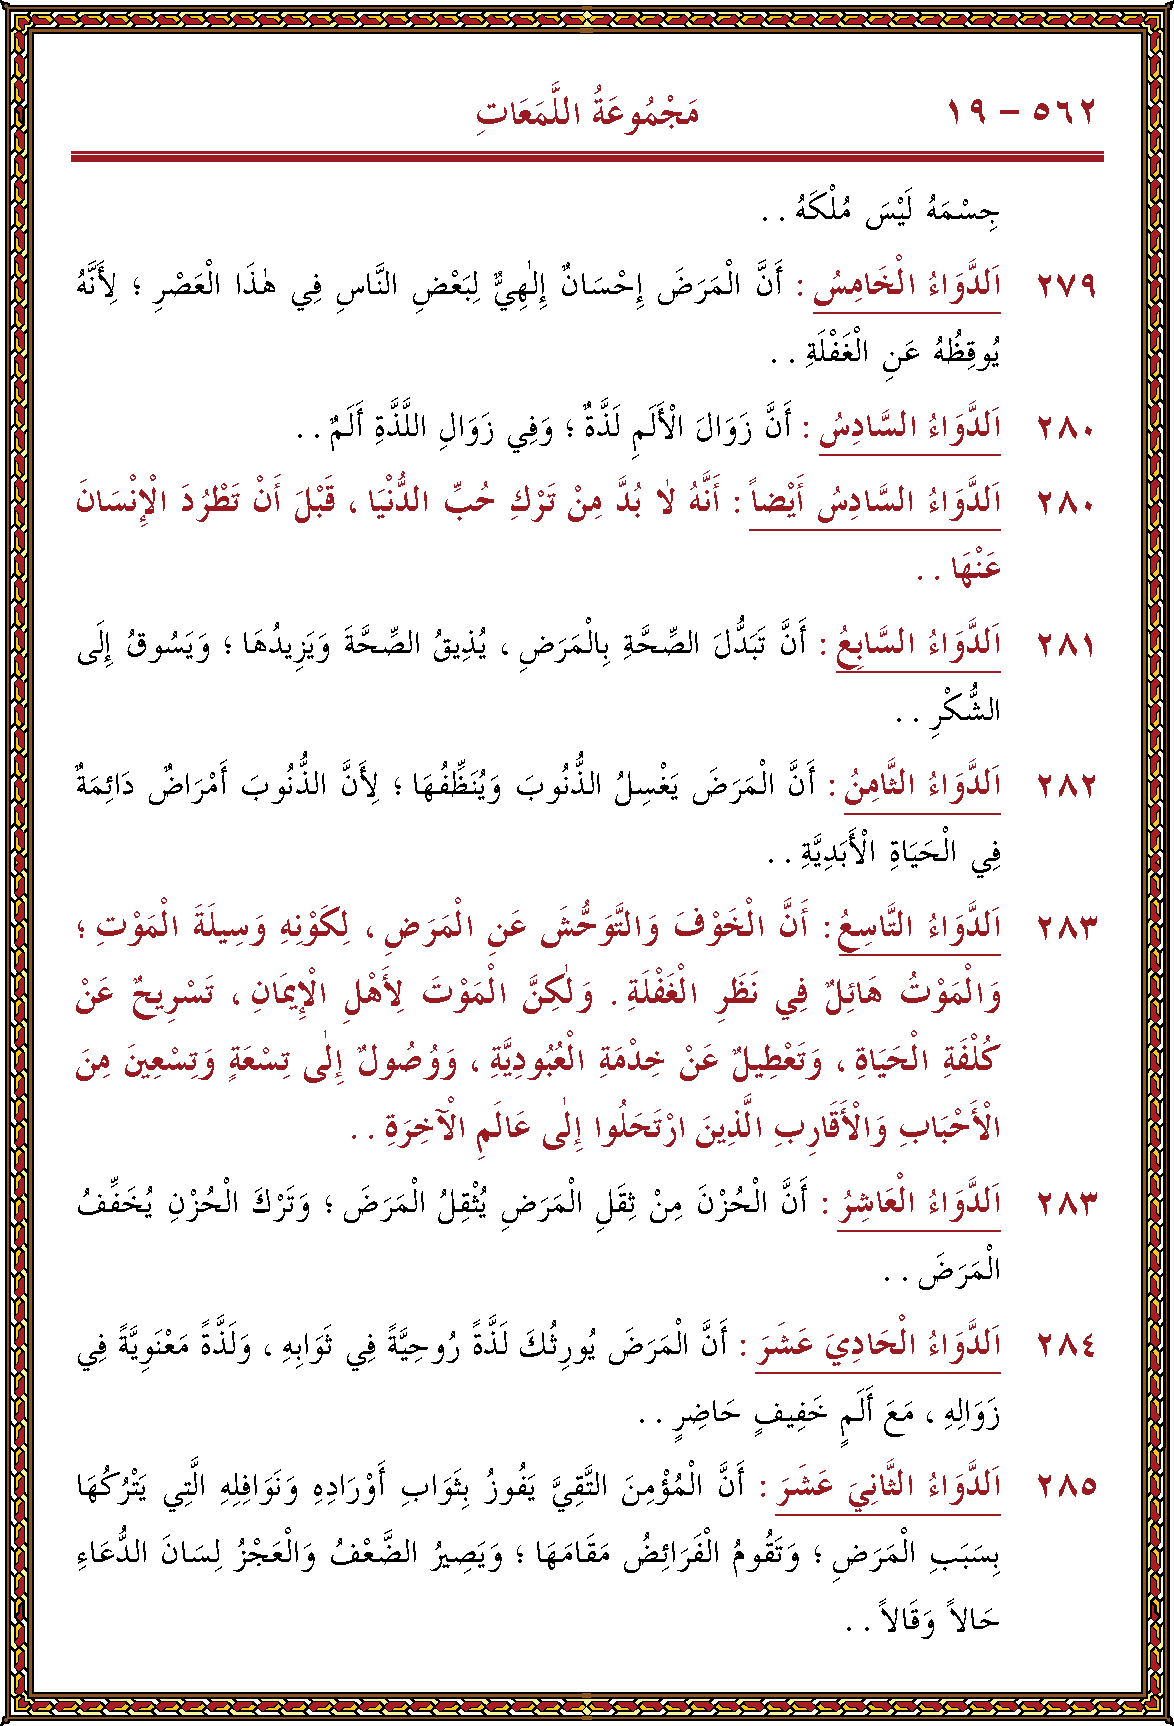 ٥٦٢ – ١٩ مَجْمُوعَةُ اللَّمَعَاتِ
جِسْمَهُ لَيْسَ مُلْكَهُ . .
٢٧٩ اَلدَّوَاءُ الْخَامِسُ : أَنَّ الْمَرَضَ إِحْسَانٌ إِلٰهِيٌّ لِبَعْضِ النَّاسِ فِي هٰذَا الْعَصْرِ ؛ لِأَنَّهُ
يُوقِظُهُ عَنِ الْغَفْلَةِ . .
٢٨٠ اَلدَّوَاءُ السَّادِسُ : أَنَّ زَوَالَ الْأَلَمِ لَذَّةٌ ؛ وَفِي زَوَالِ اللَّذَّةِ أَلَمٌ . .
٢٨٠ اَلدَّوَاءُ السَّادِسُ أَيْضاً : أَنَّهُ لَا بُدَّ مِنْ تَرْكِ حُبِّ الدُّنْيَا ، قَبْلَ أَنْ تَطْرُدَ الْإِنْسَانَ
عَنْهَا . .
٢٨١ اَلدَّوَاءُ السَّابِعُ : أَنَّ تَبَدُّلَ الصِّحَّةِ بِالْمَرَضِ ، يُذِيقُ الصِّحَّةَ وَيَزِيدُهَا ؛ وَيَسُوقُ إِلَى
الشُّكْرِ . .
٢٨٢ اَلدَّوَاءُ الثَّامِنُ : أَنَّ الْمَرَضَ يَغْسِلُ الذُّنُوبَ وَيُنَظِّفُهَا ؛ لِأَنَّ الذُّنُوبَ أَمْرَاضٌ دَائِمَةٌ
فِي الْحَيَاةِ الْأَبَدِيَّةِ . .
٢٨٣ اَلدَّوَاءُ التَّاسِعُ : أَنَّ الْخَوْفَ وَالتَّوَحُّشَ عَنِ الْمَرَضِ ، لِكَوْنِهِ وَسِيلَةَ الْمَوْتِ ؛
وَالْمَوْتُ هَائِلٌ فِي نَظَرِ الْغَفْلَةِ . وَلٰكِنَّ الْمَوْتَ لِأَهْلِ الْإِيمَانِ ، تَسْرِيحٌ عَنْ
كُلْفَةِ الْحَيَاةِ ، وَتَعْطِيلٌ عَنْ خِدْمَةِ الْعُبُودِيَّةِ ، وَوُصُولٌ إِلٰى تِسْعَةٍ وَتِسْعِينَ مِنَ
الْأَحْبَابِ وَالْأَقَارِبِ الَّذِينَ ارْتَحَلُوا إِلٰى عَالَمِ الْآخِرَةِ . .
٢٨٣ اَلدَّوَاءُ الْعَاشِرُ : أَنَّ الْحُزْنَ مِنْ ثِقَلِ الْمَرَضِ يُثْقِلُ الْمَرَضَ ؛ وَتَرْكَ الْحُزْنِ يُخَفِّفُ
الْمَرَضَ . .
٢٨٤ اَلدَّوَاءُ الْحَادِيَ عَشَرَ : أَنَّ الْمَرَضَ يُورِثُكَ لَذَّةً رُوحِيَّةً فِي ثَوَابِهِ ، وَلَذَّةً مَعْنَوِيَّةً فِي
زَوَالِهِ ، مَعَ أَلَمٍ خَفِيفٍ حَاضِرٍ . .
٢٨٥ اَلدَّوَاءُ الثَّانِيَ عَشَرَ : أَنَّ الْمُؤْمِنَ التَّقِيَّ يَفُوزُ بِثَوَابِ أَوْرَادِهِ وَنَوَافِلِهِ الَّتِي يَتْرُكُهَا
بِسَبَبِ الْمَرَضِ ؛ وَتَقُومُ الْفَرَائِضُ مَقَامَهَا ؛ وَيَصِيرُ الضَّعْفُ وَالْعَجْزُ لِسَانَ الدُّعَاءِ
حَالاً وَقَالاً . .